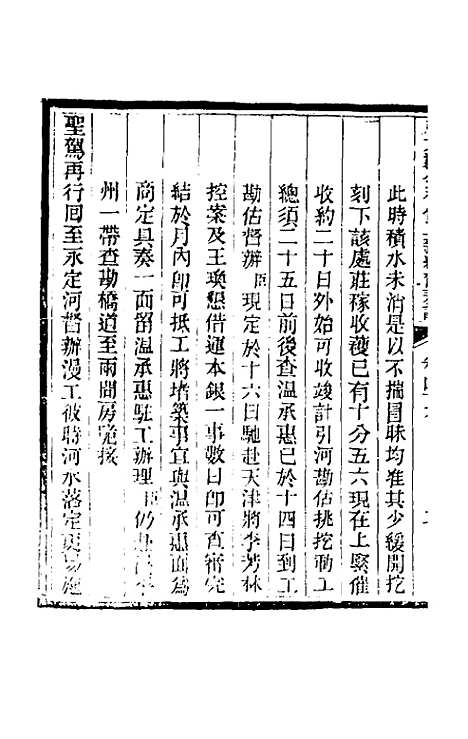 此時積水未消是以不揣冒昧均准其少緩開挖
刻下該處莊稼收穫已有十分五六現在上緊催
收約二十日外始可收竣計引河勘估挑挖動工
總須二十五日前後查溫承惠已於十四日到工
勘估督辦臣現定於十六日馳赴天津將李芳林
控案及王瓊懇借運本銀一事數日即可查審完
結於月內即可抵工將堵築事宜與溫承惠面為
商定具奏一面留溫承惠駐工辦理臣仍
州一帶查勘橋道至兩間房跪接
聖駕再行回至永定河督辦漫工彼時河水落定更易施